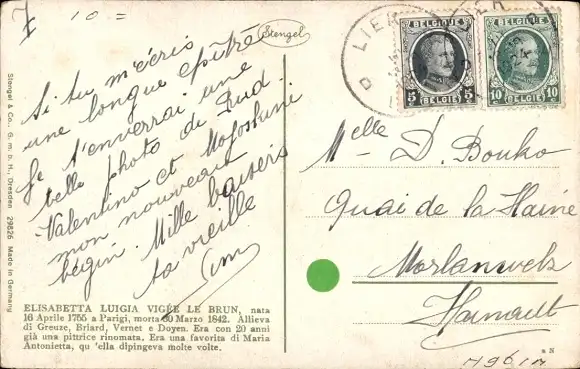 10 =
Stengel
LIER
BELGIQUE
5 5
BELGIË
BELGIQUE
10 10
BELGIË
Si tu m'écris
une longue épître
je t'enverrai une
belle photo de Rud
Valentino et
mon nouveau
béguin. Mille baisers
ta vieille
Stengel & Co., G. m. b. H., Dresden 29826 Made in Germany
Melle D. Bouko
Quai de la Haine
Morlanwelz
Hainault
ELISABETTA LUIGIA VIGÉE LE BRUN, nata
16 Aprile 1755 a Parigi, morta 30 Marzo 1842. Allieva
di Greuze, Briard, Vernet e Doyen. Era con 20 anni
già una pittrice rinomata. Era una favorita di Maria
Antonietta, qu 'ella dipingeva molte volte.
a N